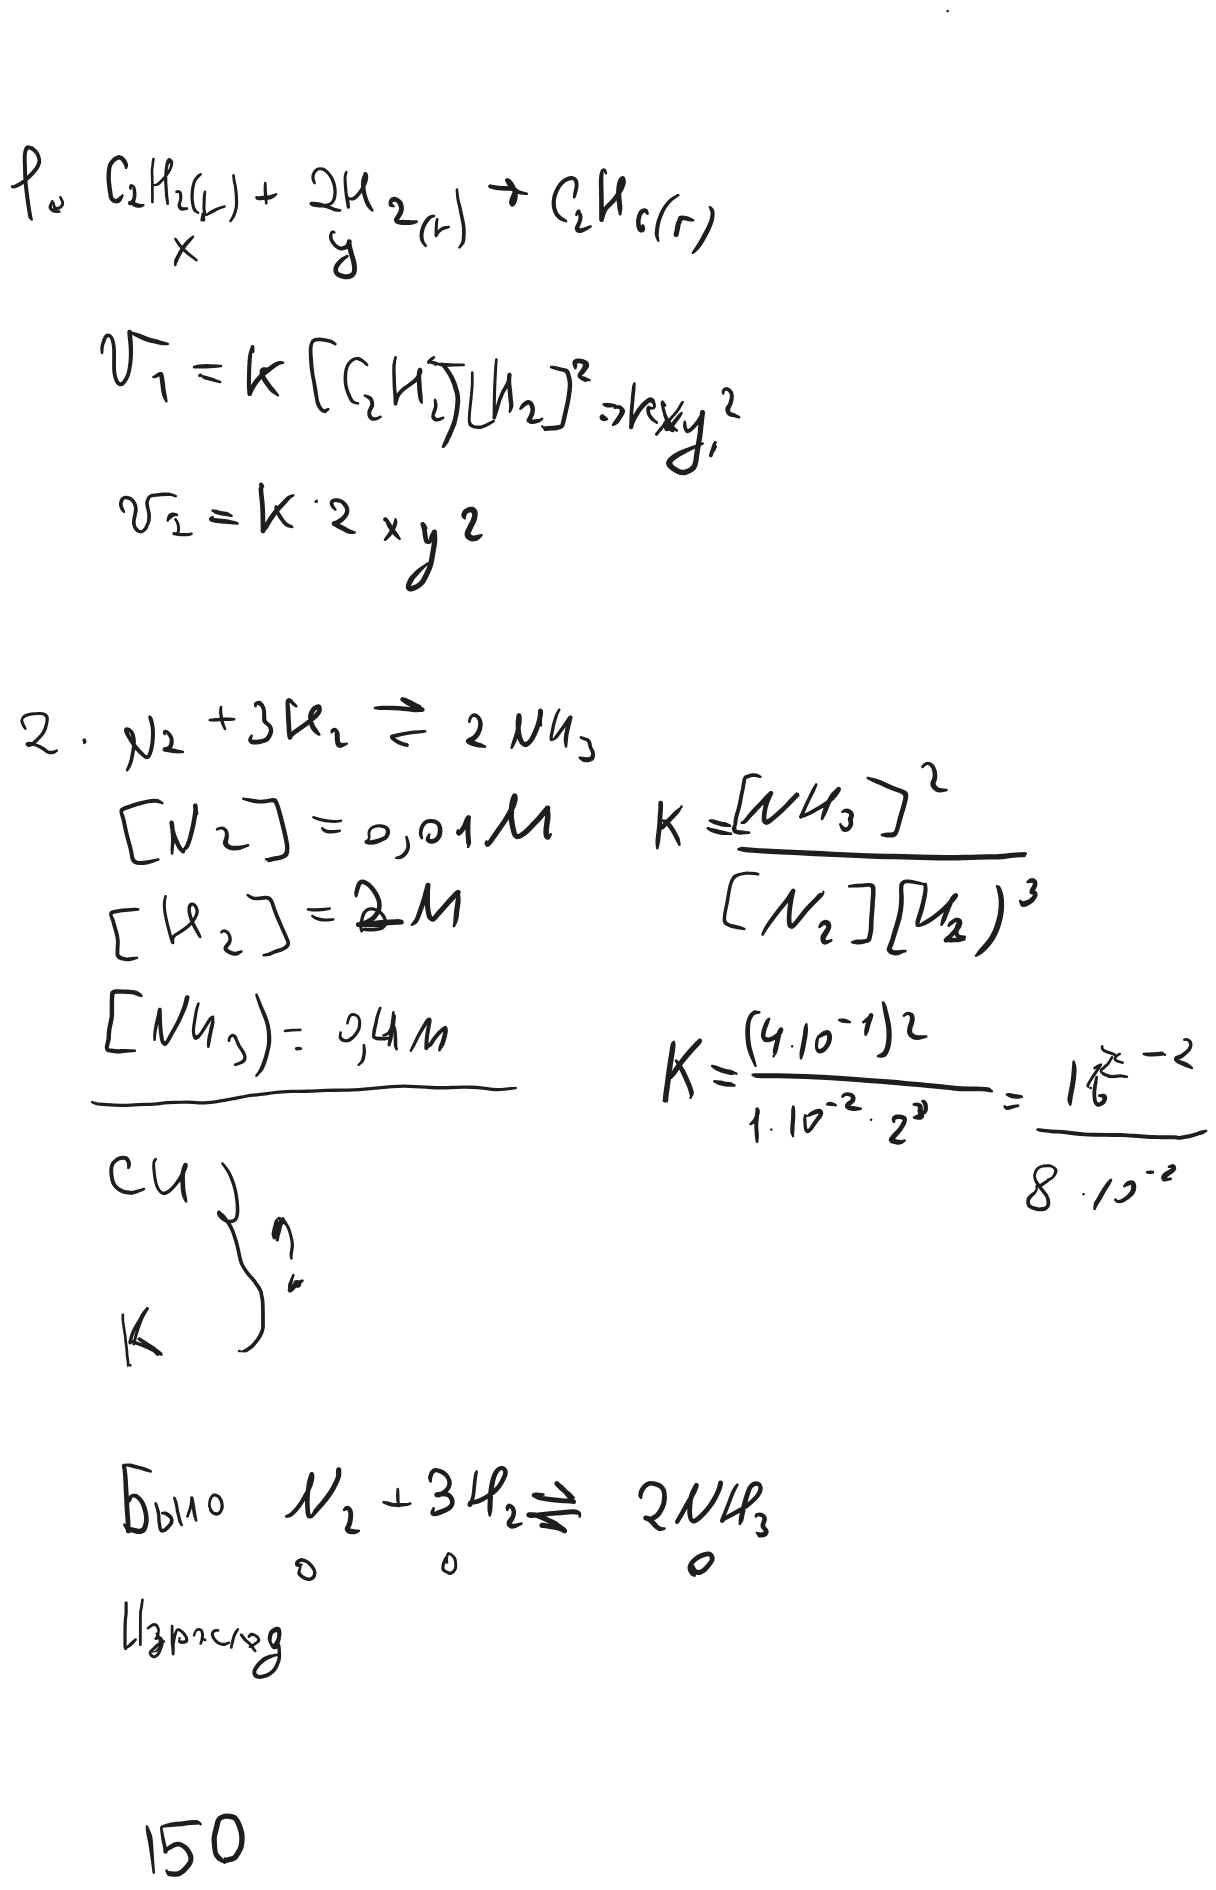 1. C₂H₂(г) + 2H₂(г) → C₂H₆(г)
x y
V₁ = K [C₂H₂)[H₂]² => kxy²
V₂ = K · 2 x y²
2. N₂ + 3H₂ ⇌ 2 NH₃
[N₂] = 0,01 M
[H₂] = 2 M
[NH₃) = 0,4 м
K = [NH₃]² / [N₂][H₂)³
K = (4·10⁻¹)² / 1·10⁻² · 2³ = 16⁻² / 8 · 10⁻²
СН } ?
K
Было N₂ + 3H₂ ⇌ 2NH₃
0 0 0
Израсход
150